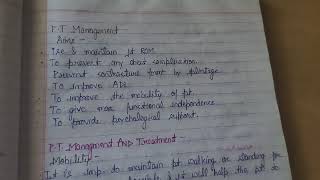 P.T. Management
Aims -
Inc & maintain jt ROM
To prevent any chest complication
Prevent contracture form by
To improve ADL
To improve the mobility of pt.
To give more functional independence
To provide psychological support.
P.T. Management AND Treatment -
Mobility -
It is imp to maintain pt walking or standing for
it will help the pt to